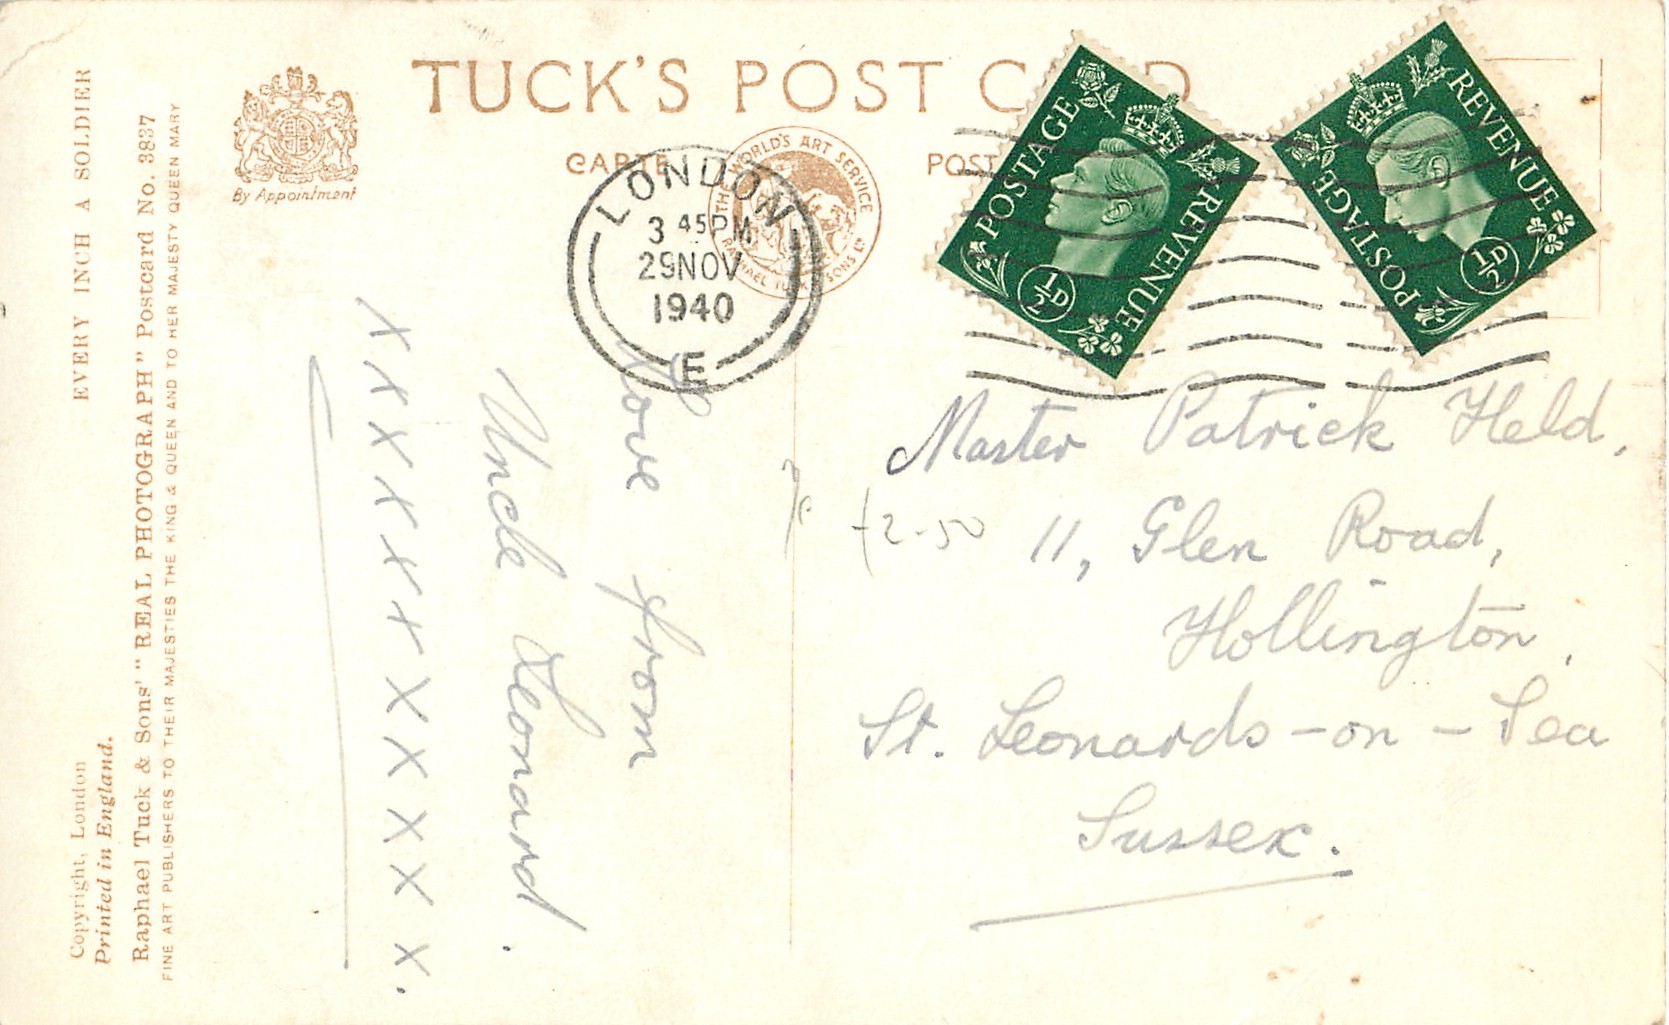 TUCK'S POST C D
CARTE POST
By Appointment
THE WORLD'S ART SERVICE
RAPHAEL TUCK & SONS LTD
LONDON
3 45PM
29NOV
1940
E
POSTAGE REVENUE
½D
POSTAGE REVENUE
½D
EVERY INCH A SOLDIER
Copyright, London
Printed in England.
Raphael Tuck & Sons' "REAL PHOTOGRAPH" Postcard No. 3837
FINE ART PUBLISHERS TO THEIR MAJESTIES THE KING & QUEEN AND TO HER MAJESTY QUEEN MARY
Love from
Uncle Leonard.
x x x x x x x x x x x.
Master Patrick Held,
11, Glen Road,
Hollington,
St. Leonards-on-Sea
Sussex.
£2-50